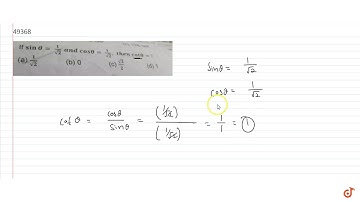 49368
If sin θ = 1/√2 and cosθ = 1/√2, then cotθ =
(a) 1/√2 (b) 0 (c) √3/2 (d) 1
Sinθ = 1/√2
cosθ = 1/√2
cot θ = cosθ/sinθ = (1/√2)/(1/√2) = 1/1 = 1